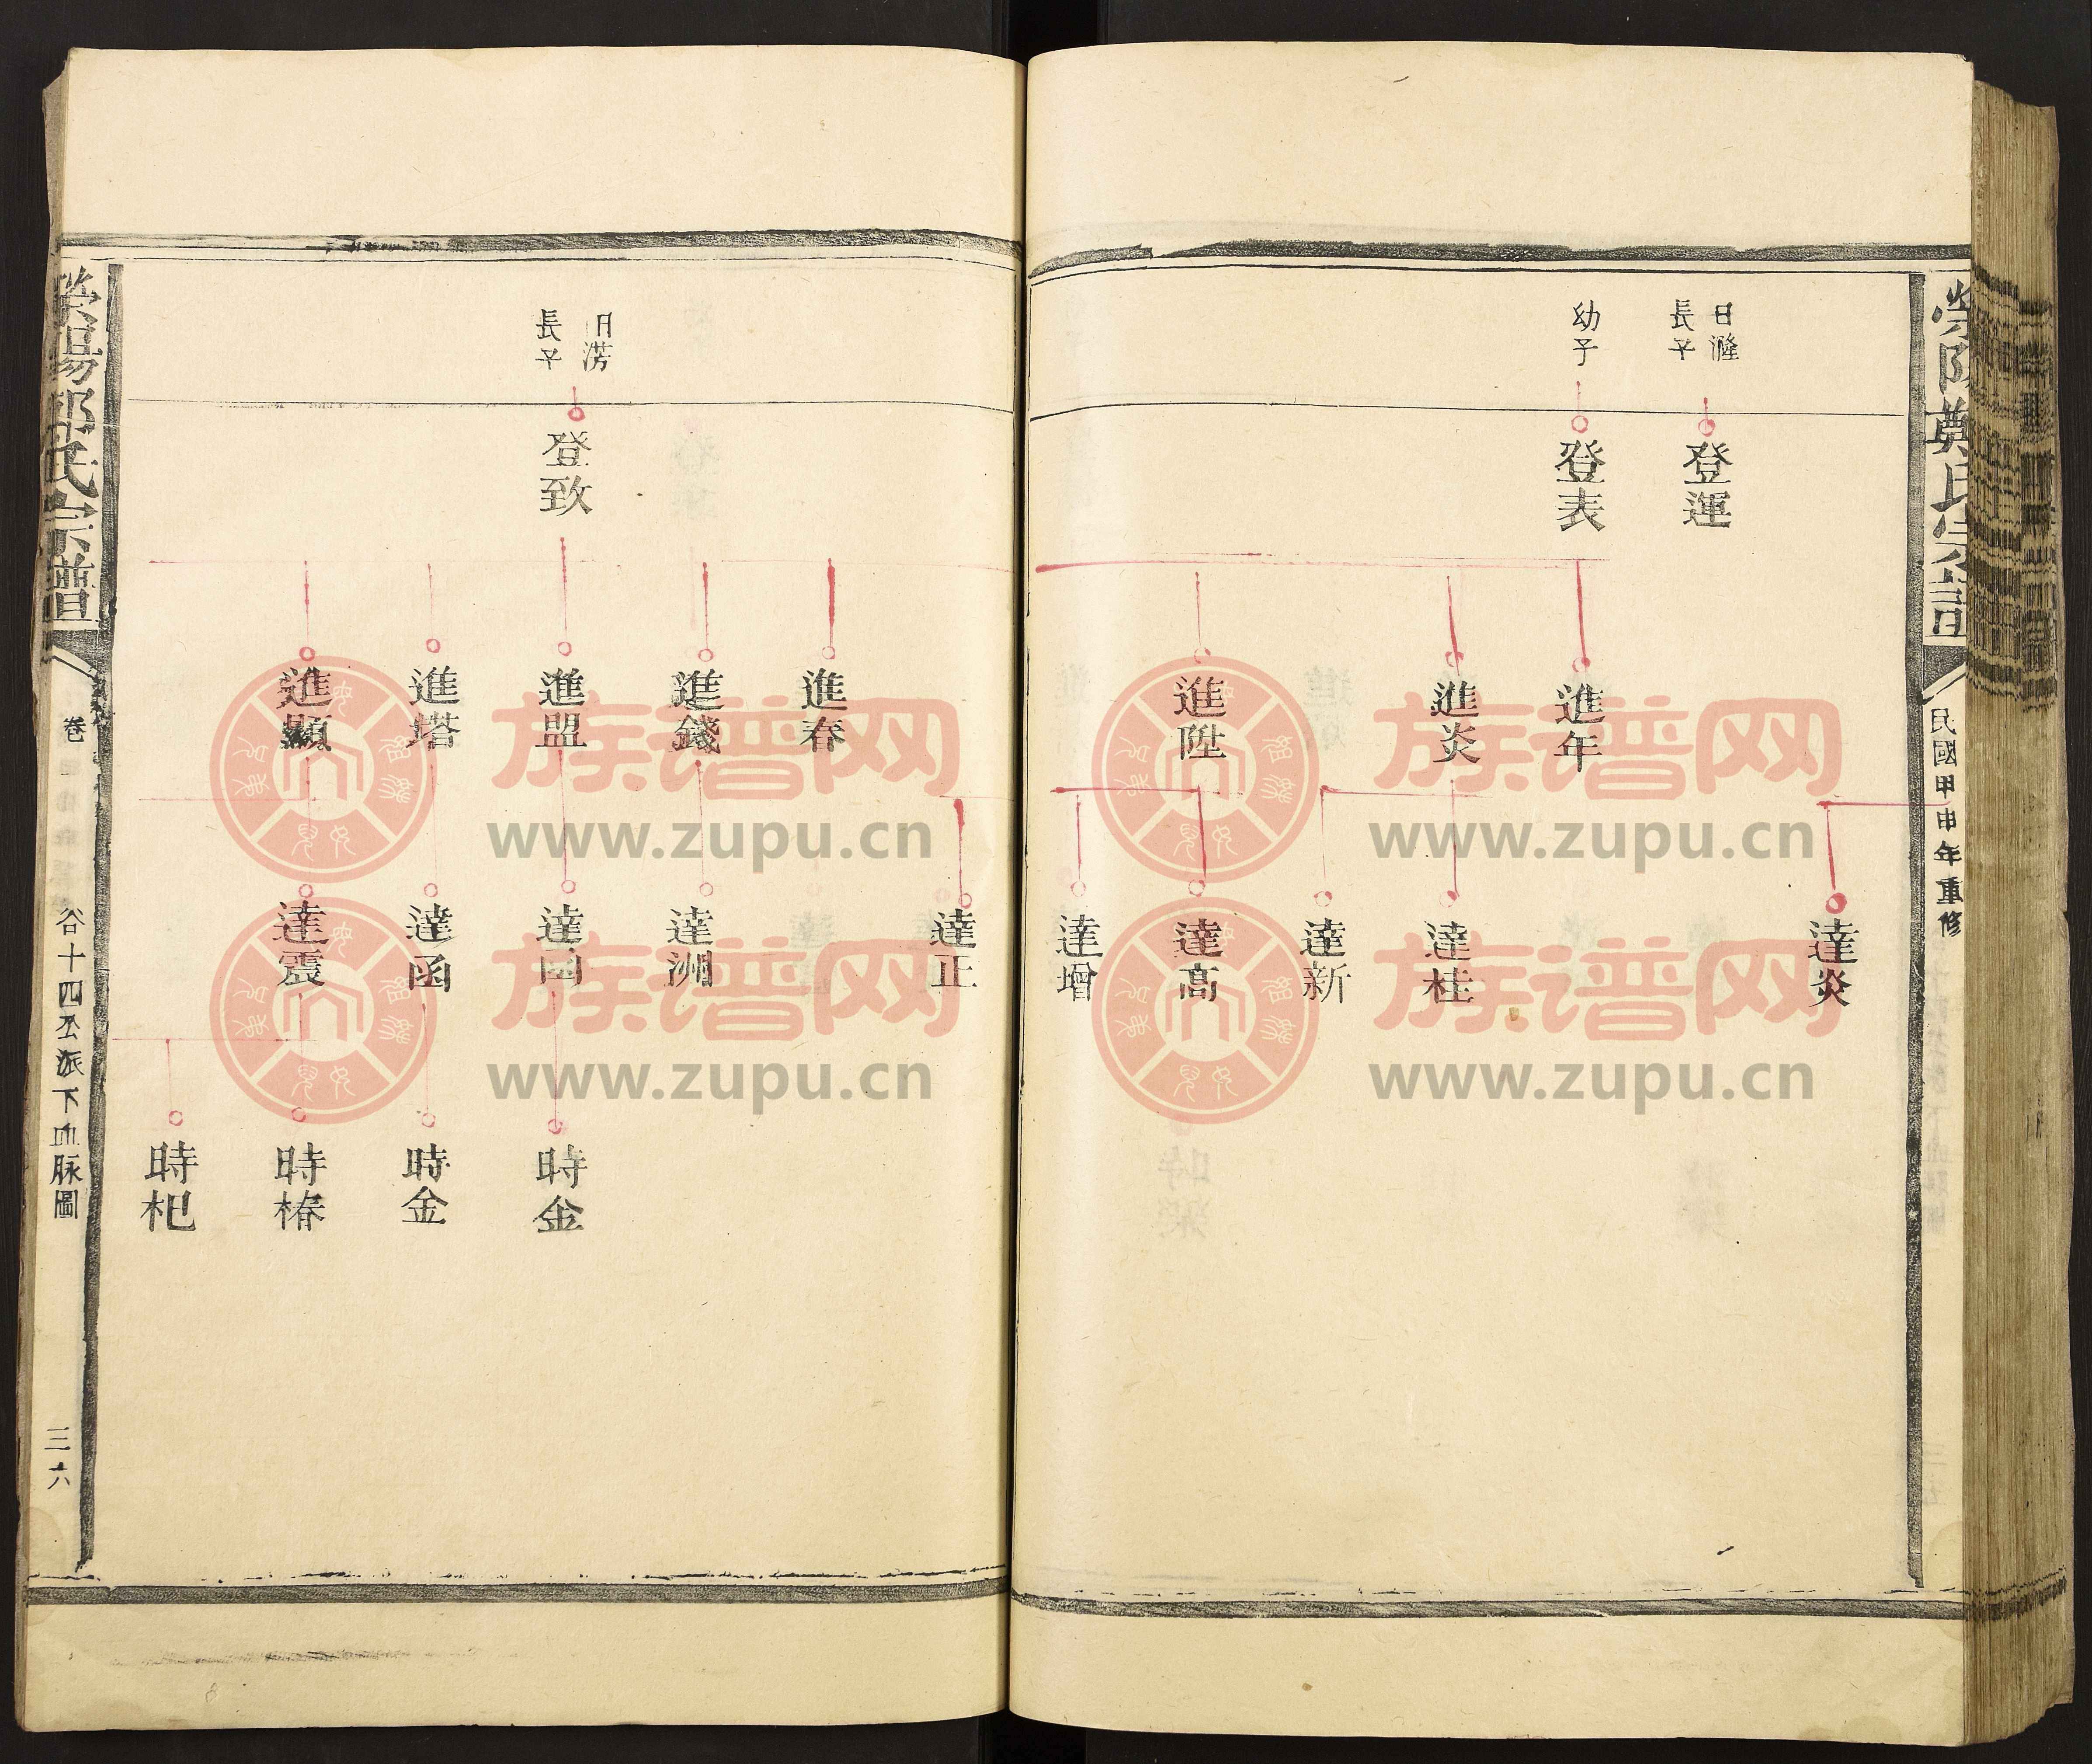 滎陽鄭氏宗譜
民國甲申年重修
日漋
長子
幼子
登運
登表
進年
進炎
進陞
達炎
達桂
達新
達高
達增
日淓
長子
登致
進春
進錢
進盟
進塔
進顯
達正
達洲
達函
達震
時金
時金
時椿
時杞
滎陽鄭氏宗譜
卷
谷十四公派下血脉圖
三六
族谱网
www.zupu.cn
族谱网
www.zupu.cn
族谱网
www.zupu.cn
族谱网
www.zupu.cn